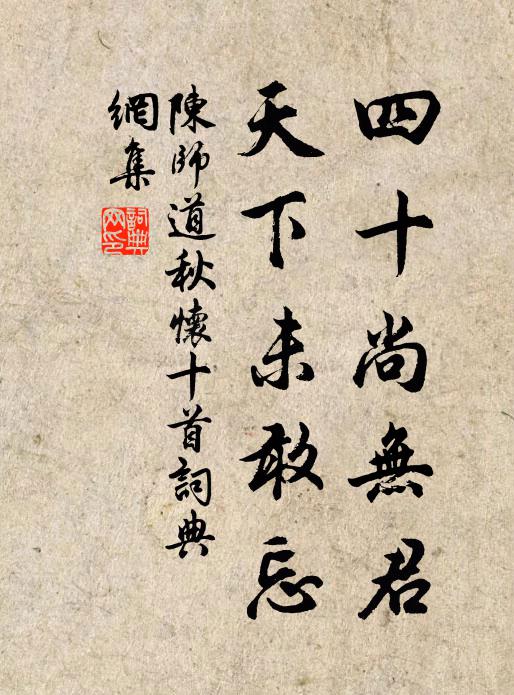 四十尚無君
天下未敢忘
陳師道秋懷十首詞典
網集
詞典
网印